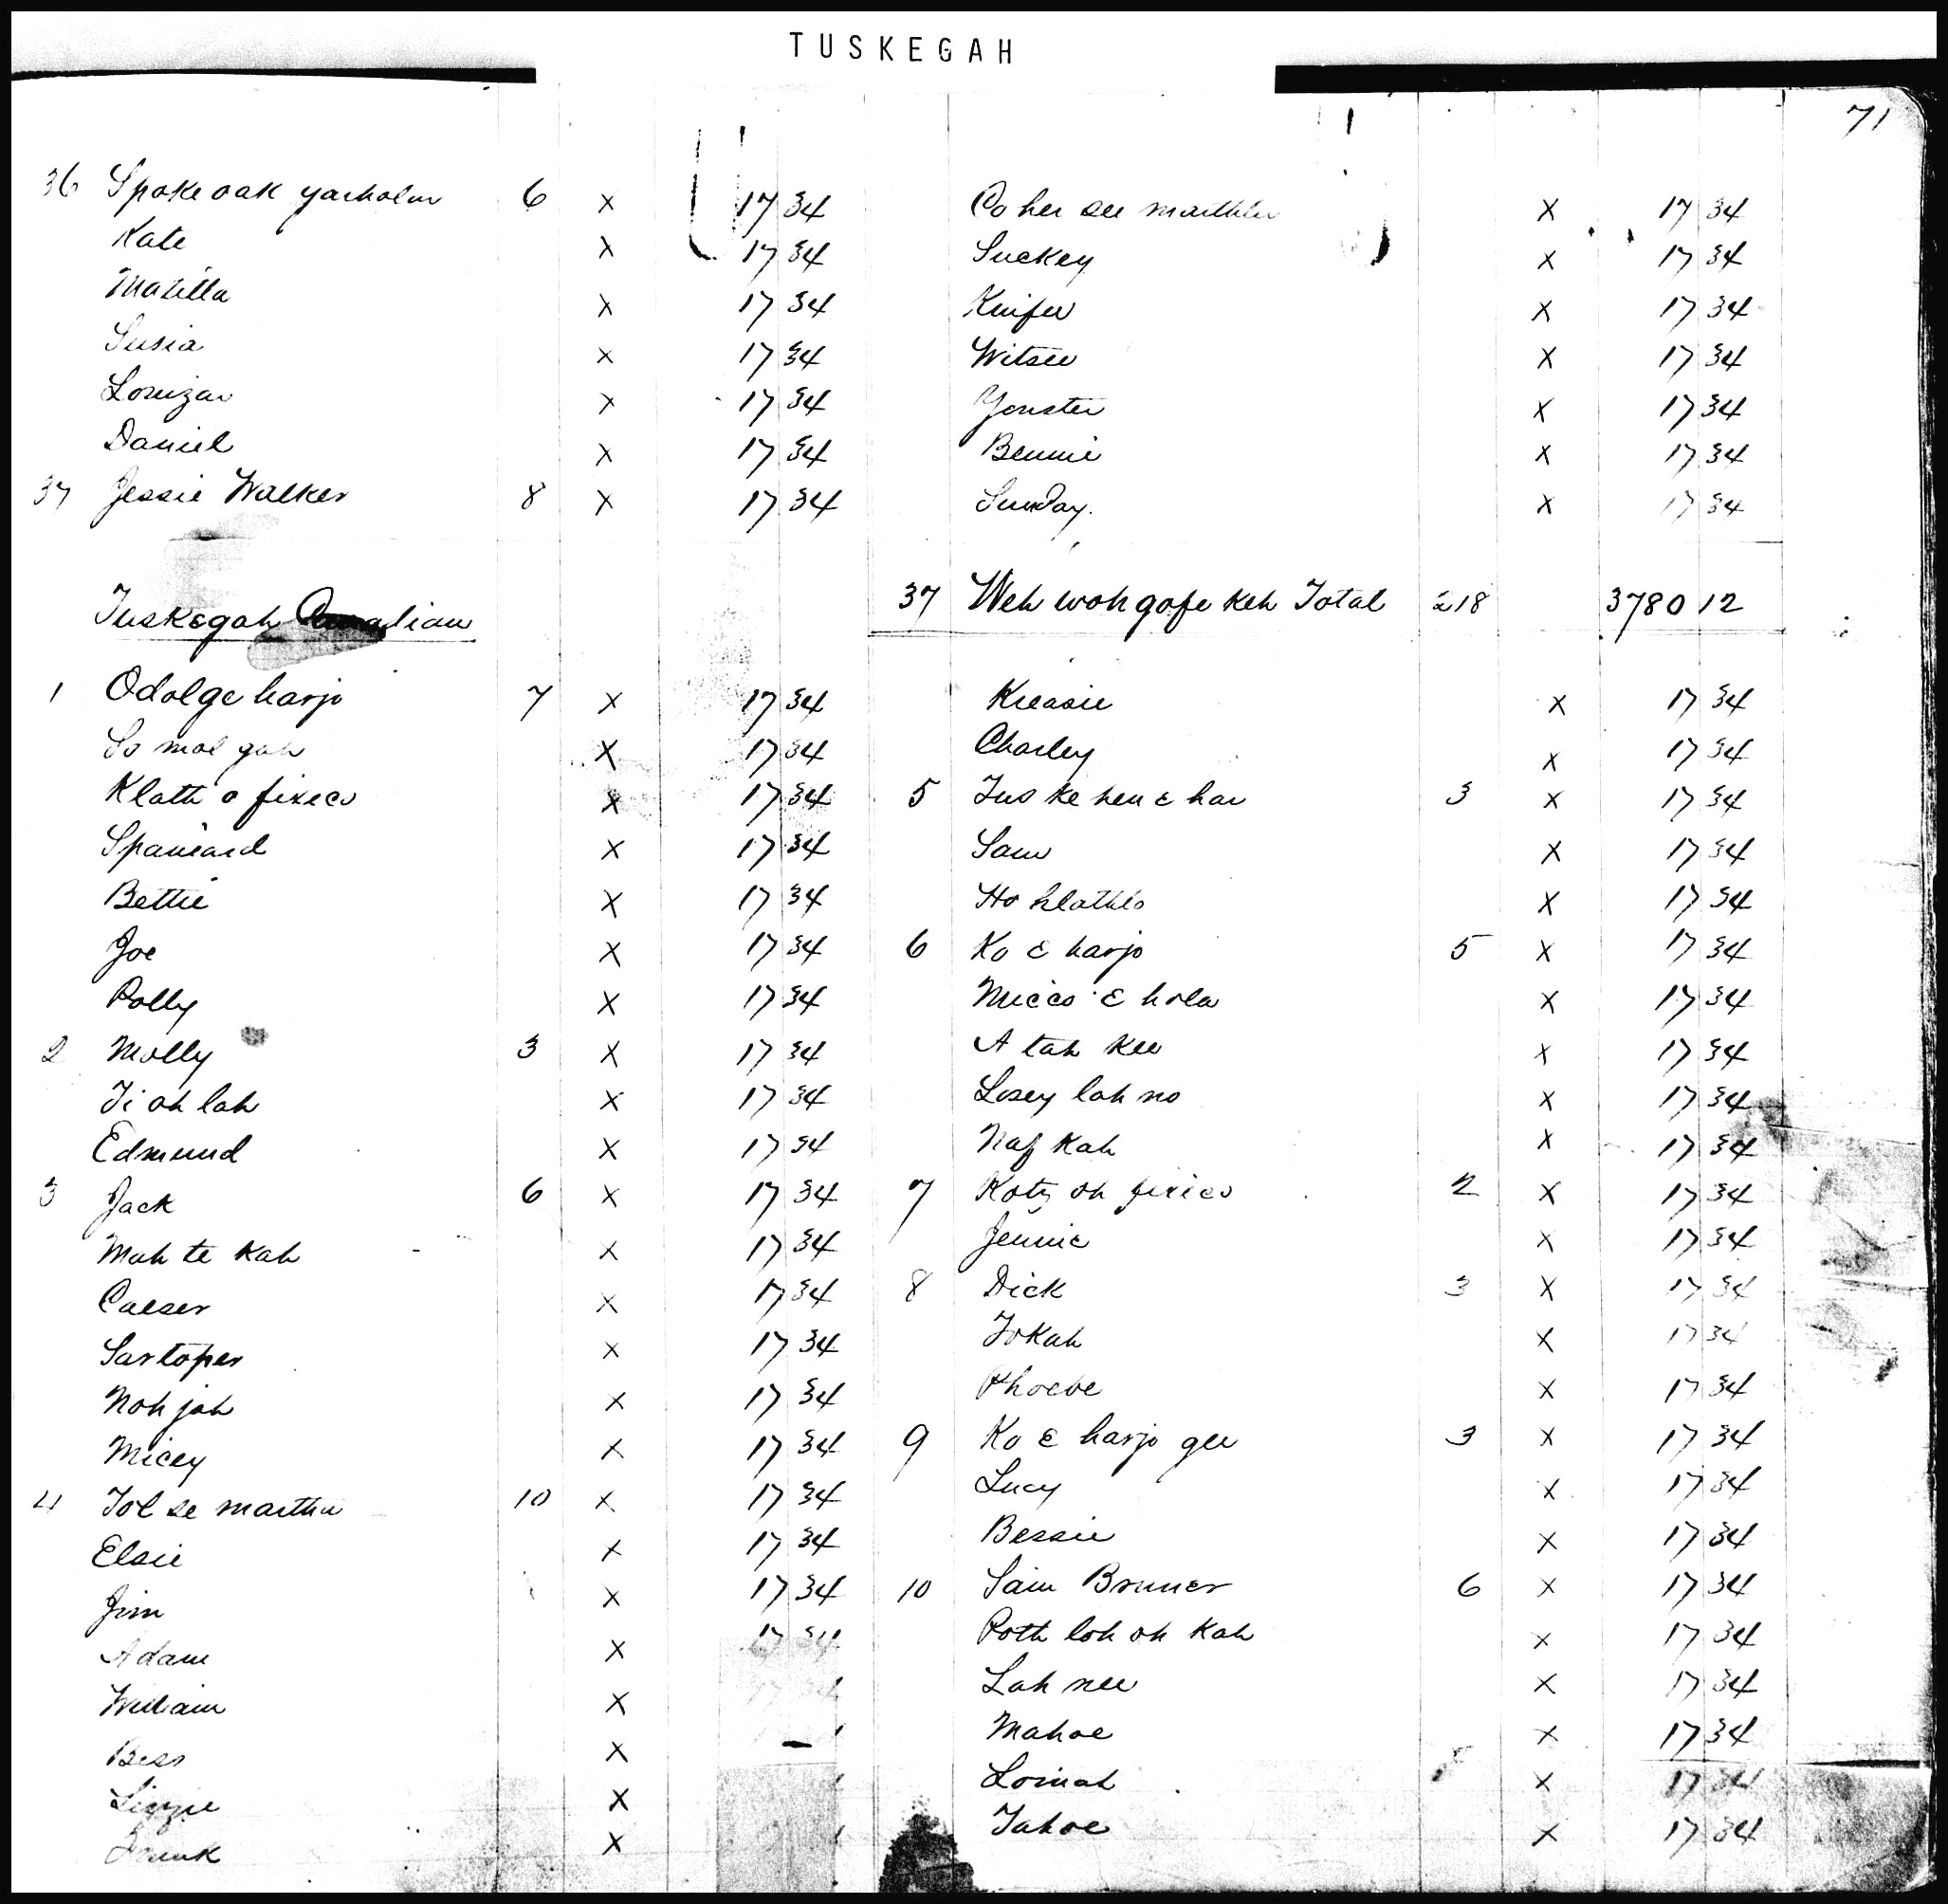 TUSKEGAH
71
36 Spoke oak yarholar 6 x 17 34
Kate x 17 34
Matilla x 17 34
Susia x 17 34
Louizar x 17 34
Daniel x 17 34
37 Jessie Walker 8 x 17 34
Co her see marthler x 17 34
Suckey x 17 34
Knifer x 17 34
Witsee x 17 34
Yonster x 17 34
Bennie x 17 34
Sunday. x 17 34
37 Weh woh gofe keh Total 218 3780 12
Tuskegah
1 Odolge harjo 7 x 17 34
So mol gah x 17 34
Klath o fixico x 17 34
Spaniard x 17 34
Bettie x 17 34
Joe x 17 34
Polly x 17 34
2 Molly 3 x 17 34
Ti oh lah x 17 34
Edmund x 17 34
3 Jack 6 x 17 34
Mah te kah x 17 34
Caeser x 17 34
Sartoper x 17 34
Noh jah x 17 34
Micey x 17 34
4 Tol se martha 10 x 17 34
Elsie x 17 34
Jim x 17 34
Adam x 17 34
William x
Bess x
Lizzie x
Frank x
Kreasie x 17 34
Charley x 17 34
5 Tus ke hen e har 3 x 17 34
Sam x 17 34
Ho hlathlo x 17 34
6 Ko e harjo 5 x 17 34
Micco e hola x 17 34
A tah kee x 17 34
Losey lah no x 17 34
Naf kah x 17 34
7 Kotz oh fixico 2 x 17 34
Jennie x 17 34
8 Dick 3 x 17 34
Tokah x 17 34
Phoebe x 17 34
9 Ko e harjo gee 3 x 17 34
Lucy x 17 34
Bessie x 17 34
10 Sam Bruner 6 x 17 34
Poth loh oh kah x 17 34
Lah nee x 17 34
Mahoe x 17 34
Lomah x 17 34
Tahoe x 17 34